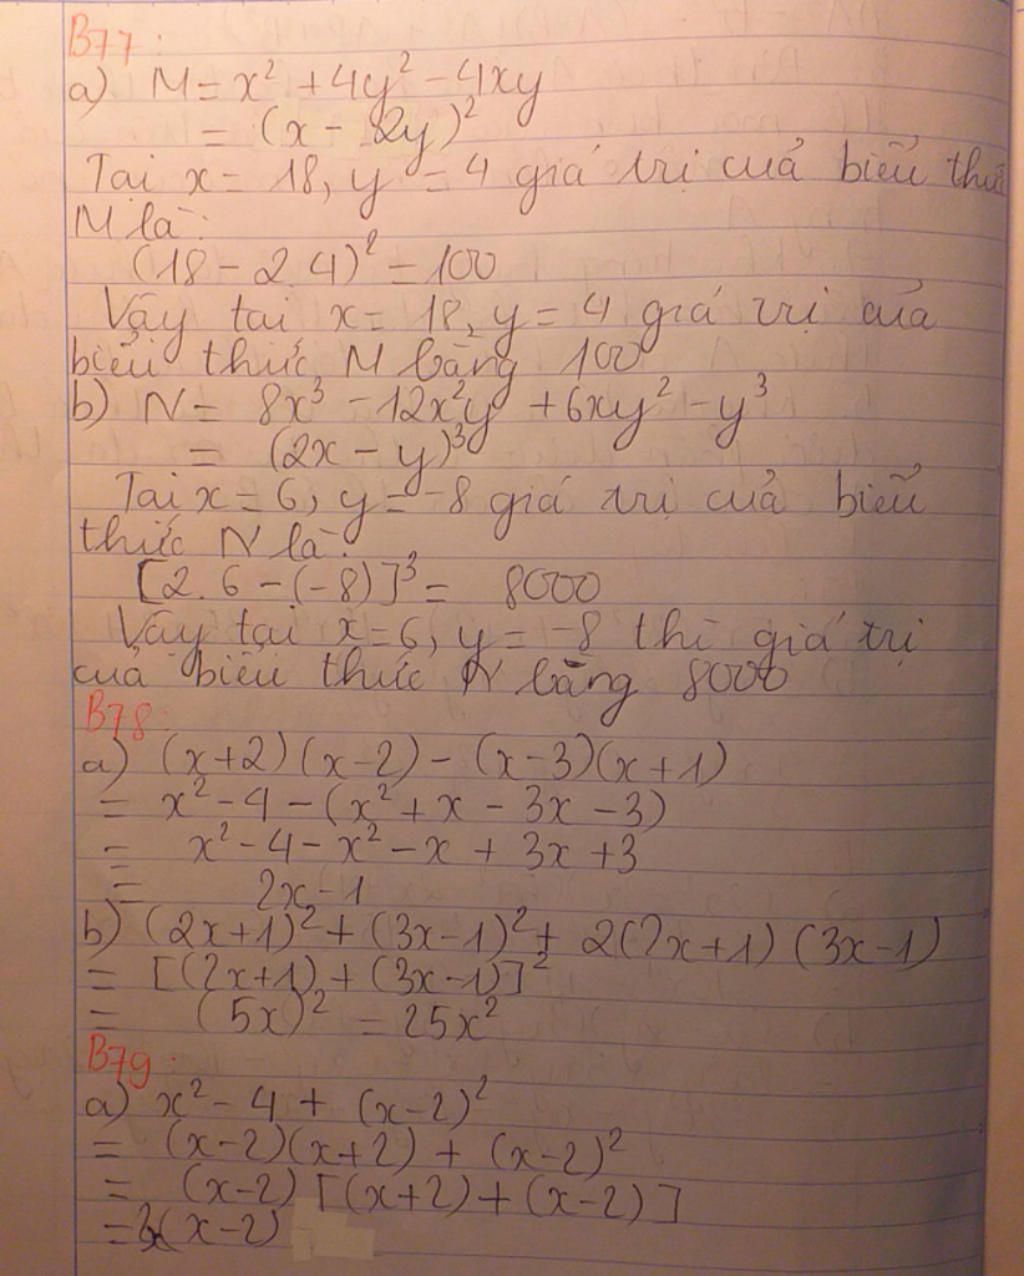 B77:
a) M = x² + 4y² - 4xy
= (x - 2y)²
Tại x = 18, y = 4 giá trị của biểu thức
M là:
(18 - 2.4)² = 100
Vậy tai x = 18, y = 4 giá trị của
biểu thức M bằng 100
b) N = 8x³ - 12x²y + 6xy² - y³
= (2x - y)³
Tai x = 6, y = -8 giá trị của biểu
thức N là:
[2.6 - (-8)]³ = 8000
Vậy tại x = 6, y = -8 thì giá trị
của biểu thức N bằng 8000
B78:
a) (x+2)(x-2) - (x-3)(x+1)
= x² - 4 - (x² + x - 3x - 3)
= x² - 4 - x² - x + 3x + 3
= 2x - 1
b) (2x+1)² + (3x-1)² + 2(2x+1)(3x-1)
= [(2x+1) + (3x-1)]²
= (5x)² = 25x²
B79:
a) x² - 4 + (x-2)²
= (x-2)(x+2) + (x-2)²
= (x-2) [(x+2) + (x-2)]
= (x-2)